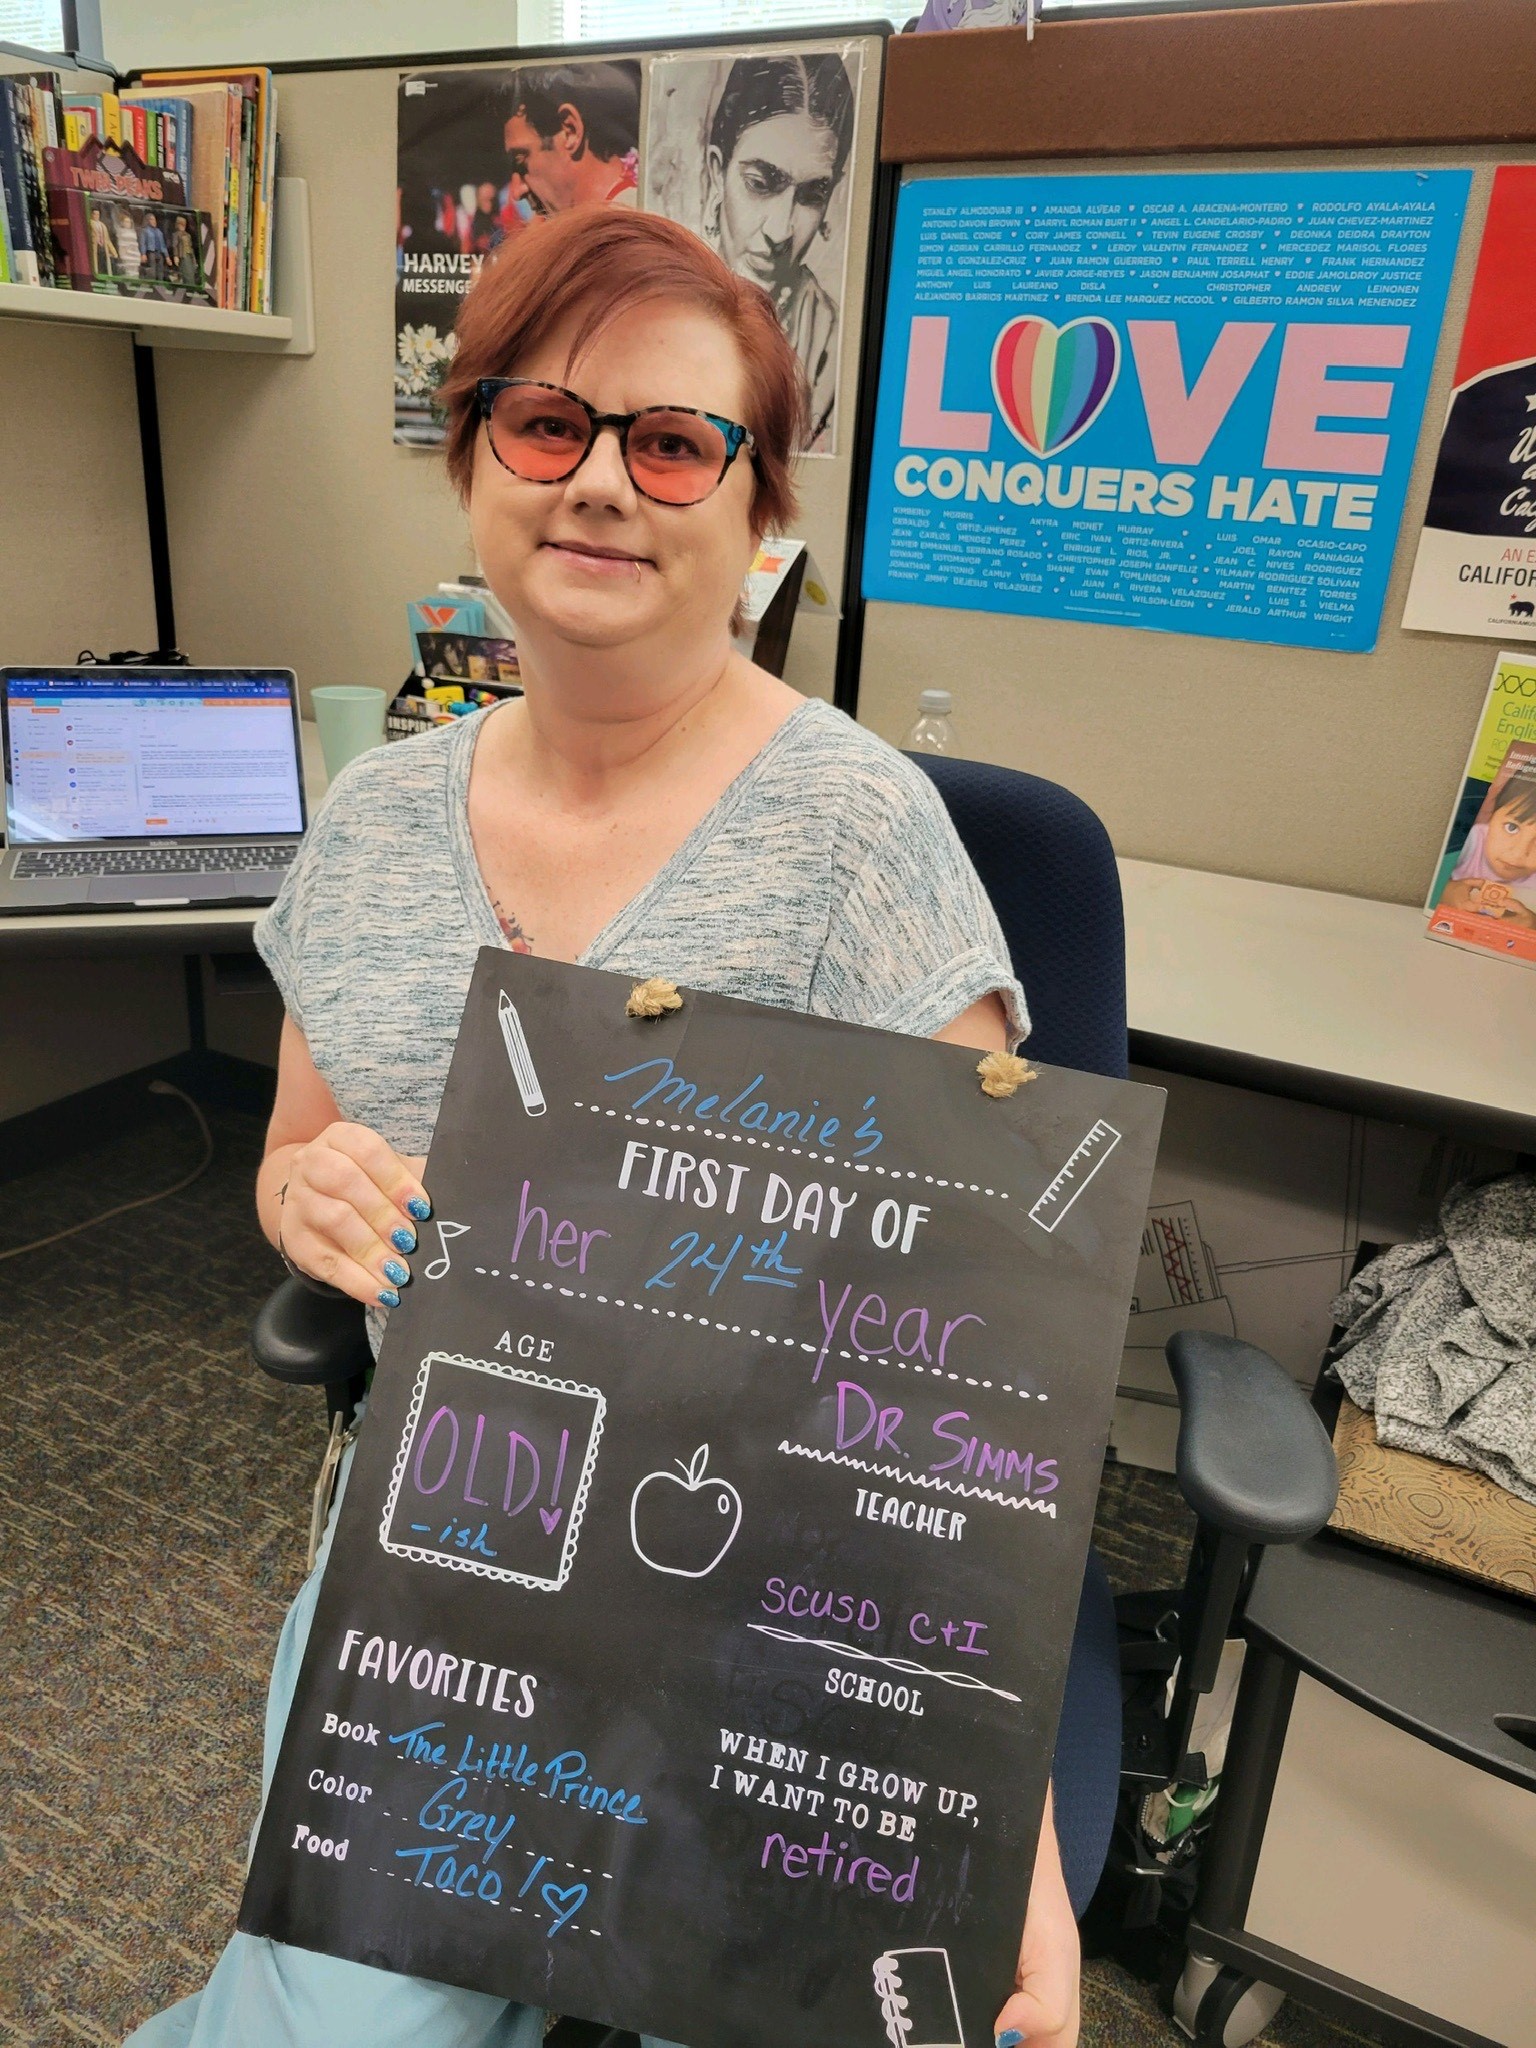 TWIN PEAKS
HARVEY
MESSENGE
STANLEY ALMODOVAR III ♥ AMANDA ALVEAR ♥ OSCAR A. ARACENA-MONTERO ♥ RODOLFO AYALA-AYALA
ANTONIO DAVON BROWN ♥ DARRYL ROMAN BURT II ♥ ANGEL L. CANDELARIO-PADRO ♥ JUAN CHEVEZ-MARTINEZ
LUIS DANIEL CONDE ♥ CORY JAMES CONNELL ♥ TEVIN EUGENE CROSBY ♥ DEONKA DEIDRA DRAYTON
SIMON ADRIAN CARRILLO FERNANDEZ ♥ LEROY VALENTIN FERNANDEZ ♥ MERCEDEZ MARISOL FLORES
PETER O. GONZALEZ-CRUZ ♥ JUAN RAMON GUERRERO ♥ PAUL TERRELL HENRY ♥ FRANK HERNANDEZ
MIGUEL ANGEL HONORATO ♥ JAVIER JORGE-REYES ♥ JASON BENJAMIN JOSAPHAT ♥ EDDIE JAMOLDROY JUSTICE
ANTHONY LUIS LAUREANO DISLA ♥ CHRISTOPHER ANDREW LEINONEN
ALEJANDRO BARRIOS MARTINEZ ♥ BRENDA LEE MARQUEZ MCCOOL ♥ GILBERTO RAMON SILVA MENENDEZ
LOVE
CONQUERS HATE
KIMBERLY MORRIS ♥ AKYRA MONET MURRAY ♥ LUIS OMAR OCASIO-CAPO
GERALDO A. ORTIZ-JIMENEZ ♥ ERIC IVAN ORTIZ-RIVERA ♥ JOEL RAYON PANIAGUA
JEAN CARLOS MENDEZ PEREZ ♥ ENRIQUE L. RIOS, JR. ♥ JEAN C. NIVES RODRIGUEZ
XAVIER EMMANUEL SERRANO ROSADO ♥ CHRISTOPHER JOSEPH SANFELIZ ♥ YILMARY RODRIGUEZ SOLIVAN
EDWARD SOTOMAYOR JR. ♥ SHANE EVAN TOMLINSON ♥ MARTIN BENITEZ TORRES
JONATHAN ANTONIO CAMUY VEGA ♥ JUAN P. RIVERA VELAZQUEZ ♥ LUIS S. VIELMA
FRANKY JIMMY DEJESUS VELAZQUEZ ♥ LUIS DANIEL WILSON-LEON ♥ JERALD ARTHUR WRIGHT
AN E
CALIFOR
Calif
Englis
INSPIRE
Melanie's
FIRST DAY OF
her 24th year
AGE
OLD!
-ish
DR. SIMMS
TEACHER
SCUSD C+I
SCHOOL
FAVORITES
Book The Little Prince
Color Grey
Food Taco!
WHEN I GROW UP,
I WANT TO BE
retired